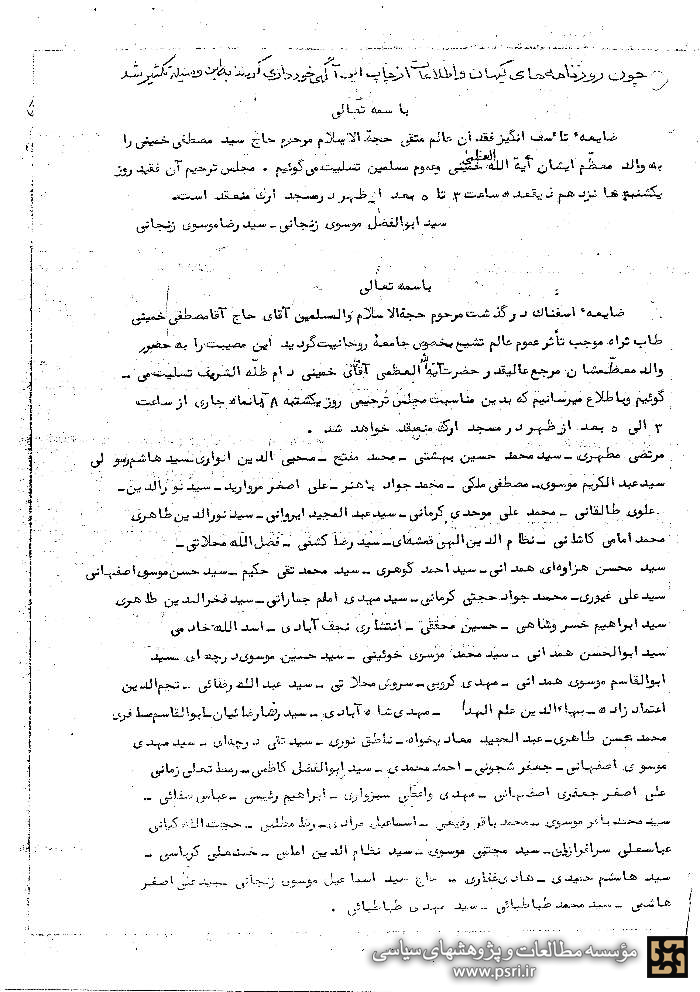 چون روزنامه‌های کیهان و اطلاعات از چاپ این آگهی خودداری کردند به این وسیله تکثیر شد
باسمه تعالی
ضایعهٔ تأسف انگیز فقدان عالم متقی حجة الاسلام مرحوم حاج سید مصطفی خمینی را
به والد معظم ایشان آیة الله العظمی خمینی و عموم مسلمین تسلیت می‌گوئیم . مجلس ترحیم آن فقید روز
یکشنبه شانزدهم ذیقعده ساعت ۳ تا ۵ بعد از ظهر در مسجد ارک منعقد است.
سید ابوالفضل موسوی زنجانی ـ سید رضا موسوی زنجانی
باسمه تعالی
ضایعهٔ اسفناک درگذشت مرحوم حجة الاسلام والمسلمین آقای حاج آقا مصطفی خمینی
طاب ثراه موجب تأثر عموم عالم تشیع بخصوص جامعهٔ روحانیت گردید این مصیبت را به حضور
والد معظمشان مرجع عالیقدر حضرت آیة الله العظمی آقای خمینی دام ظله الشریف تسلیت می ـ
گوئیم و باطلاع میرسانیم که بدین مناسبت مجلس ترحیمی روز یکشنبه ۸ آبانماه جاری از ساعت
۳ الی ۵ بعد از ظهر در مسجد ارک منعقد خواهد شد .
مرتضی مطهری ـ سید محمد حسین بهشتی ـ محمد مفتح ـ محیی الدین انواری ـ سید هاشم رسولی
سید عبدالکریم موسوی ـ مصطفی ملکی ـ محمد جواد باهنر ـ علی اصغر مروارید ـ سید نورالدین ـ
علوی طالقانی ـ محمد علی موحدی کرمانی ـ سید عبدالمجید ایروانی ـ سید نورالدین طاهری
محمد امامی کاشانی ـ نظام الدین الهی قمشه‌ای ـ سید رضا کشفی ـ فضل الله محلاتی ـ
سید محسن هزاوه‌ای همدانی ـ سید احمد گوهری ـ سید محمد تقی حکیم ـ سید حسن موسوی اصفهانی
سید علی غیوری ـ محمد جواد حجتی کرمانی ـ سید مهدی امام جمارانی ـ سید فخرالدین طاهری
سید ابراهیم خسروشاهی ـ حسین محققی ـ انتشاری نجف آبادی ـ اسد الله خادمی
سید ابوالحسن همدانی ـ سید محمد موسوی خوئینی ـ سید حسین موسوی درچه‌ای ـ سید
ابوالقاسم موسوی همدانی ـ مهدی کروبی ـ سروش محلاتی ـ سید عبدالله رضائی ـ نجم‌الدین
اعتماد زاده ـ بهاءالدین علم الهدا ـ مهدی شاه آبادی ـ سید رضا رضائیان ـ ابوالقاسم مظفری
محمد محسن طاهری ـ عبدالمجید معادیخواه ـ ناطق نوری ـ سید تقی درچه‌ای ـ سید مهدی
موسوی اصفهانی ـ جعفر شجونی ـ احمد محمدی ـ سید ابوالفضل کاظمی ـ زمانی
علی اصغر جعفری اصفهانی ـ مهدی واعظی سبزواری ـ ابراهیم رئیسی ـ عباس سقائی ـ
سید محمد باقر موسوی ـ محمد باقر رفیعی ـ اسماعیل مرادی ـ رضا مطلبی ـ حجت الله کیانی
عباسعلی سرافرازیان ـ سید مجتبی موسوی ـ سید نظام الدین امامی ـ حسنعلی کرباسی ـ
سید هاشم حمیدی ـ هادی غفاری ـ حاج سید اسماعیل موسوی زنجانی ـ سید علی اصغر
هاشمی ـ سید محمد طباطبائی ـ سید مهدی طباطبائی .
مؤسسه مطالعات و پژوهشهای سیاسی
www.psri.ir